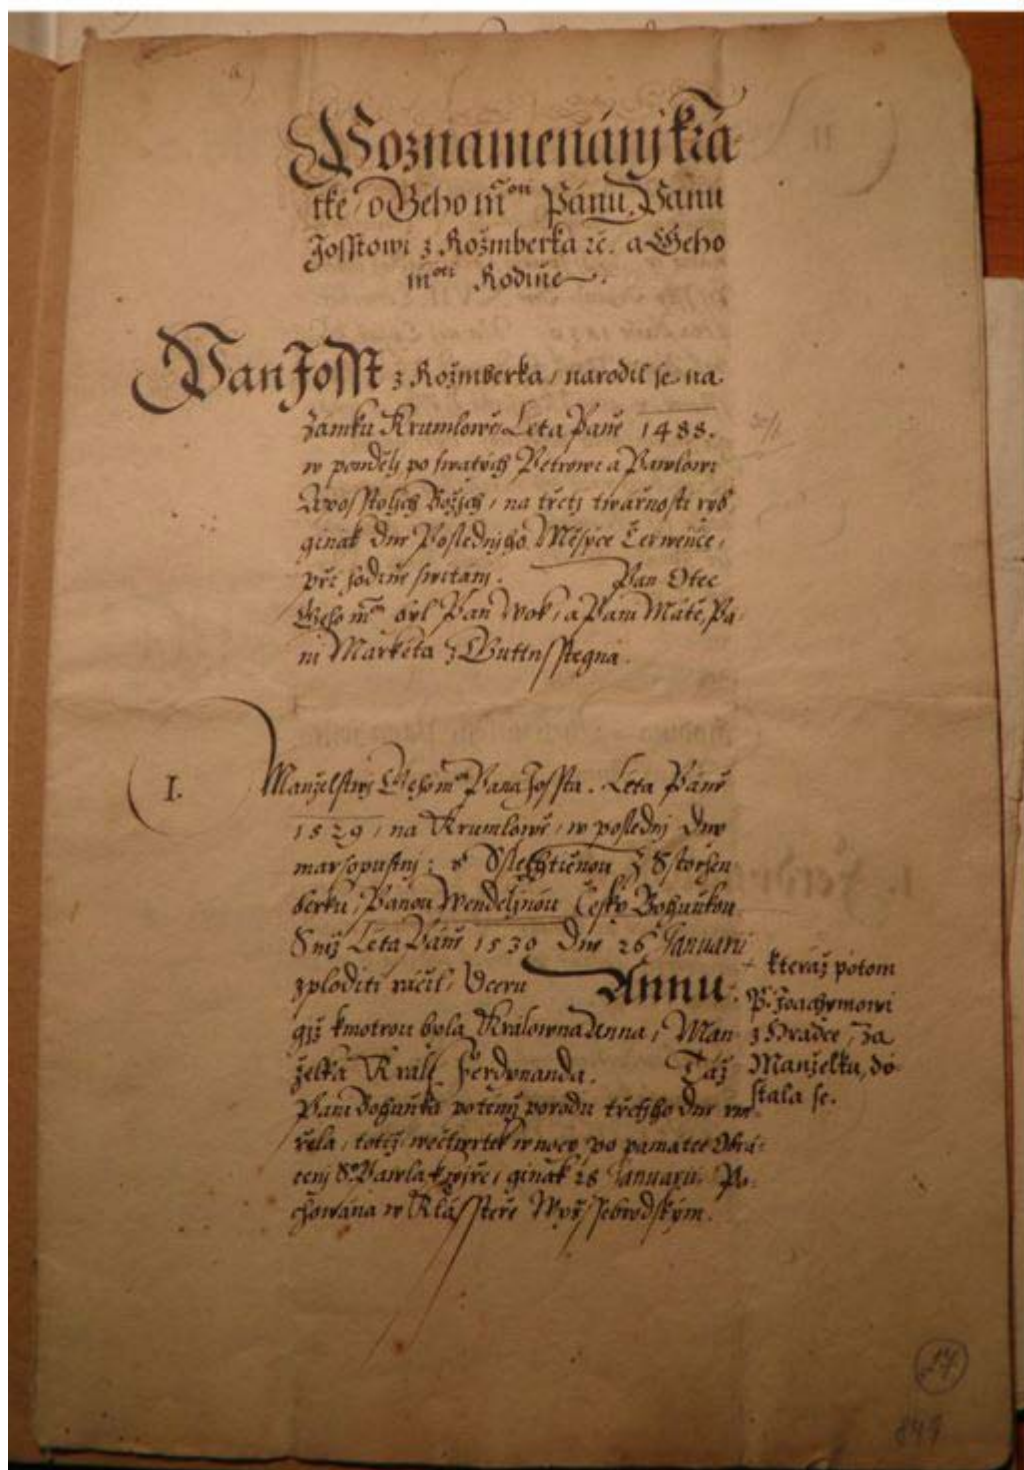 Poznamenánij krá-
tké, o Geho mti Pánu, Panu
Josstowi z Rožmberka ꝛc. a Geho
mti Rodině.
Pan Josst z Rožmberka, narodil se na
Zámku Krumlowě Leta Páně 1488.
w ponděly po swatých Petrowi a Pawlowi
Aposstolých Božých, na třetj twárnosti ryb
ginák dne Poslednijho Měsýce Čerwence,
při hodině switánj. Pan Otec
Geho mti byl Pan Wok, a Páni Máte, Pa-
ni Markéta z Guttnsstegna.
I.
Manželstwj Geho mti Pana Jossta. Leta Páně
1529, na Krumlowě, w poslednj dnw
masopustnj: s Sslechtičnou z Sstorzen-
berku, Pánou Wendelijnou Česky Bohunkou
S nij Léta Páně 1530 dne 26 Januarii
zploditi ráčil, Dceru Annu:
gijž kmotrou byla Králowna Anna, Man-
želka Krále Ferdynanda. Táž
Pani Bohunka po témž porodu třetijho dne um-
řela, totiž, we čtwrtek w nocy, po památce Obrá-
cenj S. Pawla k wjře, ginák 28 Januarii. Po-
chowána w Klássteře Wyšssebrodským.
kteráž potom
P. Joachymowi
z Hradce, Za
Manželku, do-
stala se.
27
849